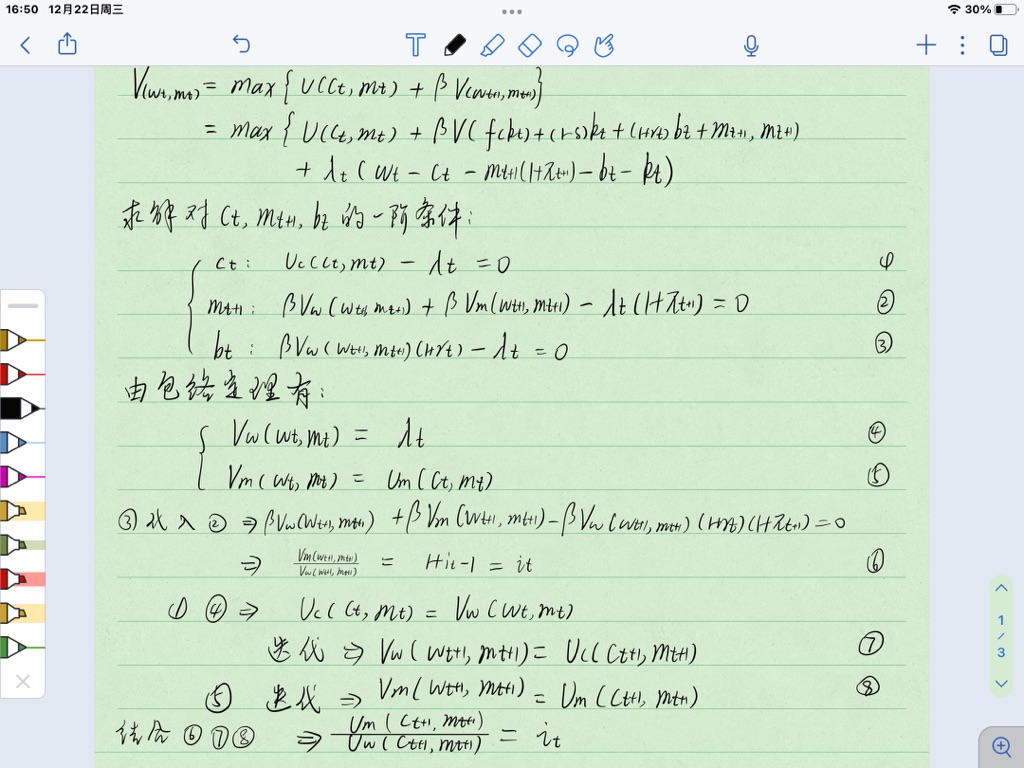 16:50 12月22日周三 30%
V(wt,mt) = max{U(Ct, mt) + βV(wt+1,mt+1)}
= max{U(Ct, mt) + βV(f(kt)+(1-δ)kt+(1+rt)bt+mt+1, mt+1)
+ λt(wt - Ct - mt+1(1+πt+1) - bt - kt)
求解对Ct, mt+1, bt的一阶条件:
Ct: Uc(Ct, mt) - λt = 0 ①
mt+1: βVw(wt+1, mt+1) + βVm(wt+1, mt+1) - λt(1+πt+1) = 0 ②
bt: βVw(wt+1, mt+1)(1+rt) - λt = 0 ③
由包络定理有:
Vw(wt, mt) = λt ④
Vm(wt, mt) = Um(Ct, mt) ⑤
③代入② ⇒ βVw(wt+1, mt+1) + βVm(wt+1, mt+1) - βVw(wt+1, mt+1)(1+rt)(1+πt+1) = 0
⇒ Vm(wt+1, mt+1) / Vw(wt+1, mt+1) = 1+it-1 = it ⑥
① ④ ⇒ Uc(Ct, mt) = Vw(wt, mt)
迭代 ⇒ Vw(wt+1, mt+1) = Uc(Ct+1, mt+1) ⑦
⑤ 迭代 ⇒ Vm(wt+1, mt+1) = Um(Ct+1, mt+1) ⑧
结合⑥⑦⑧ ⇒ Um(Ct+1, mt+1) / Uw(Ct+1, mt+1) = it
1
/
3